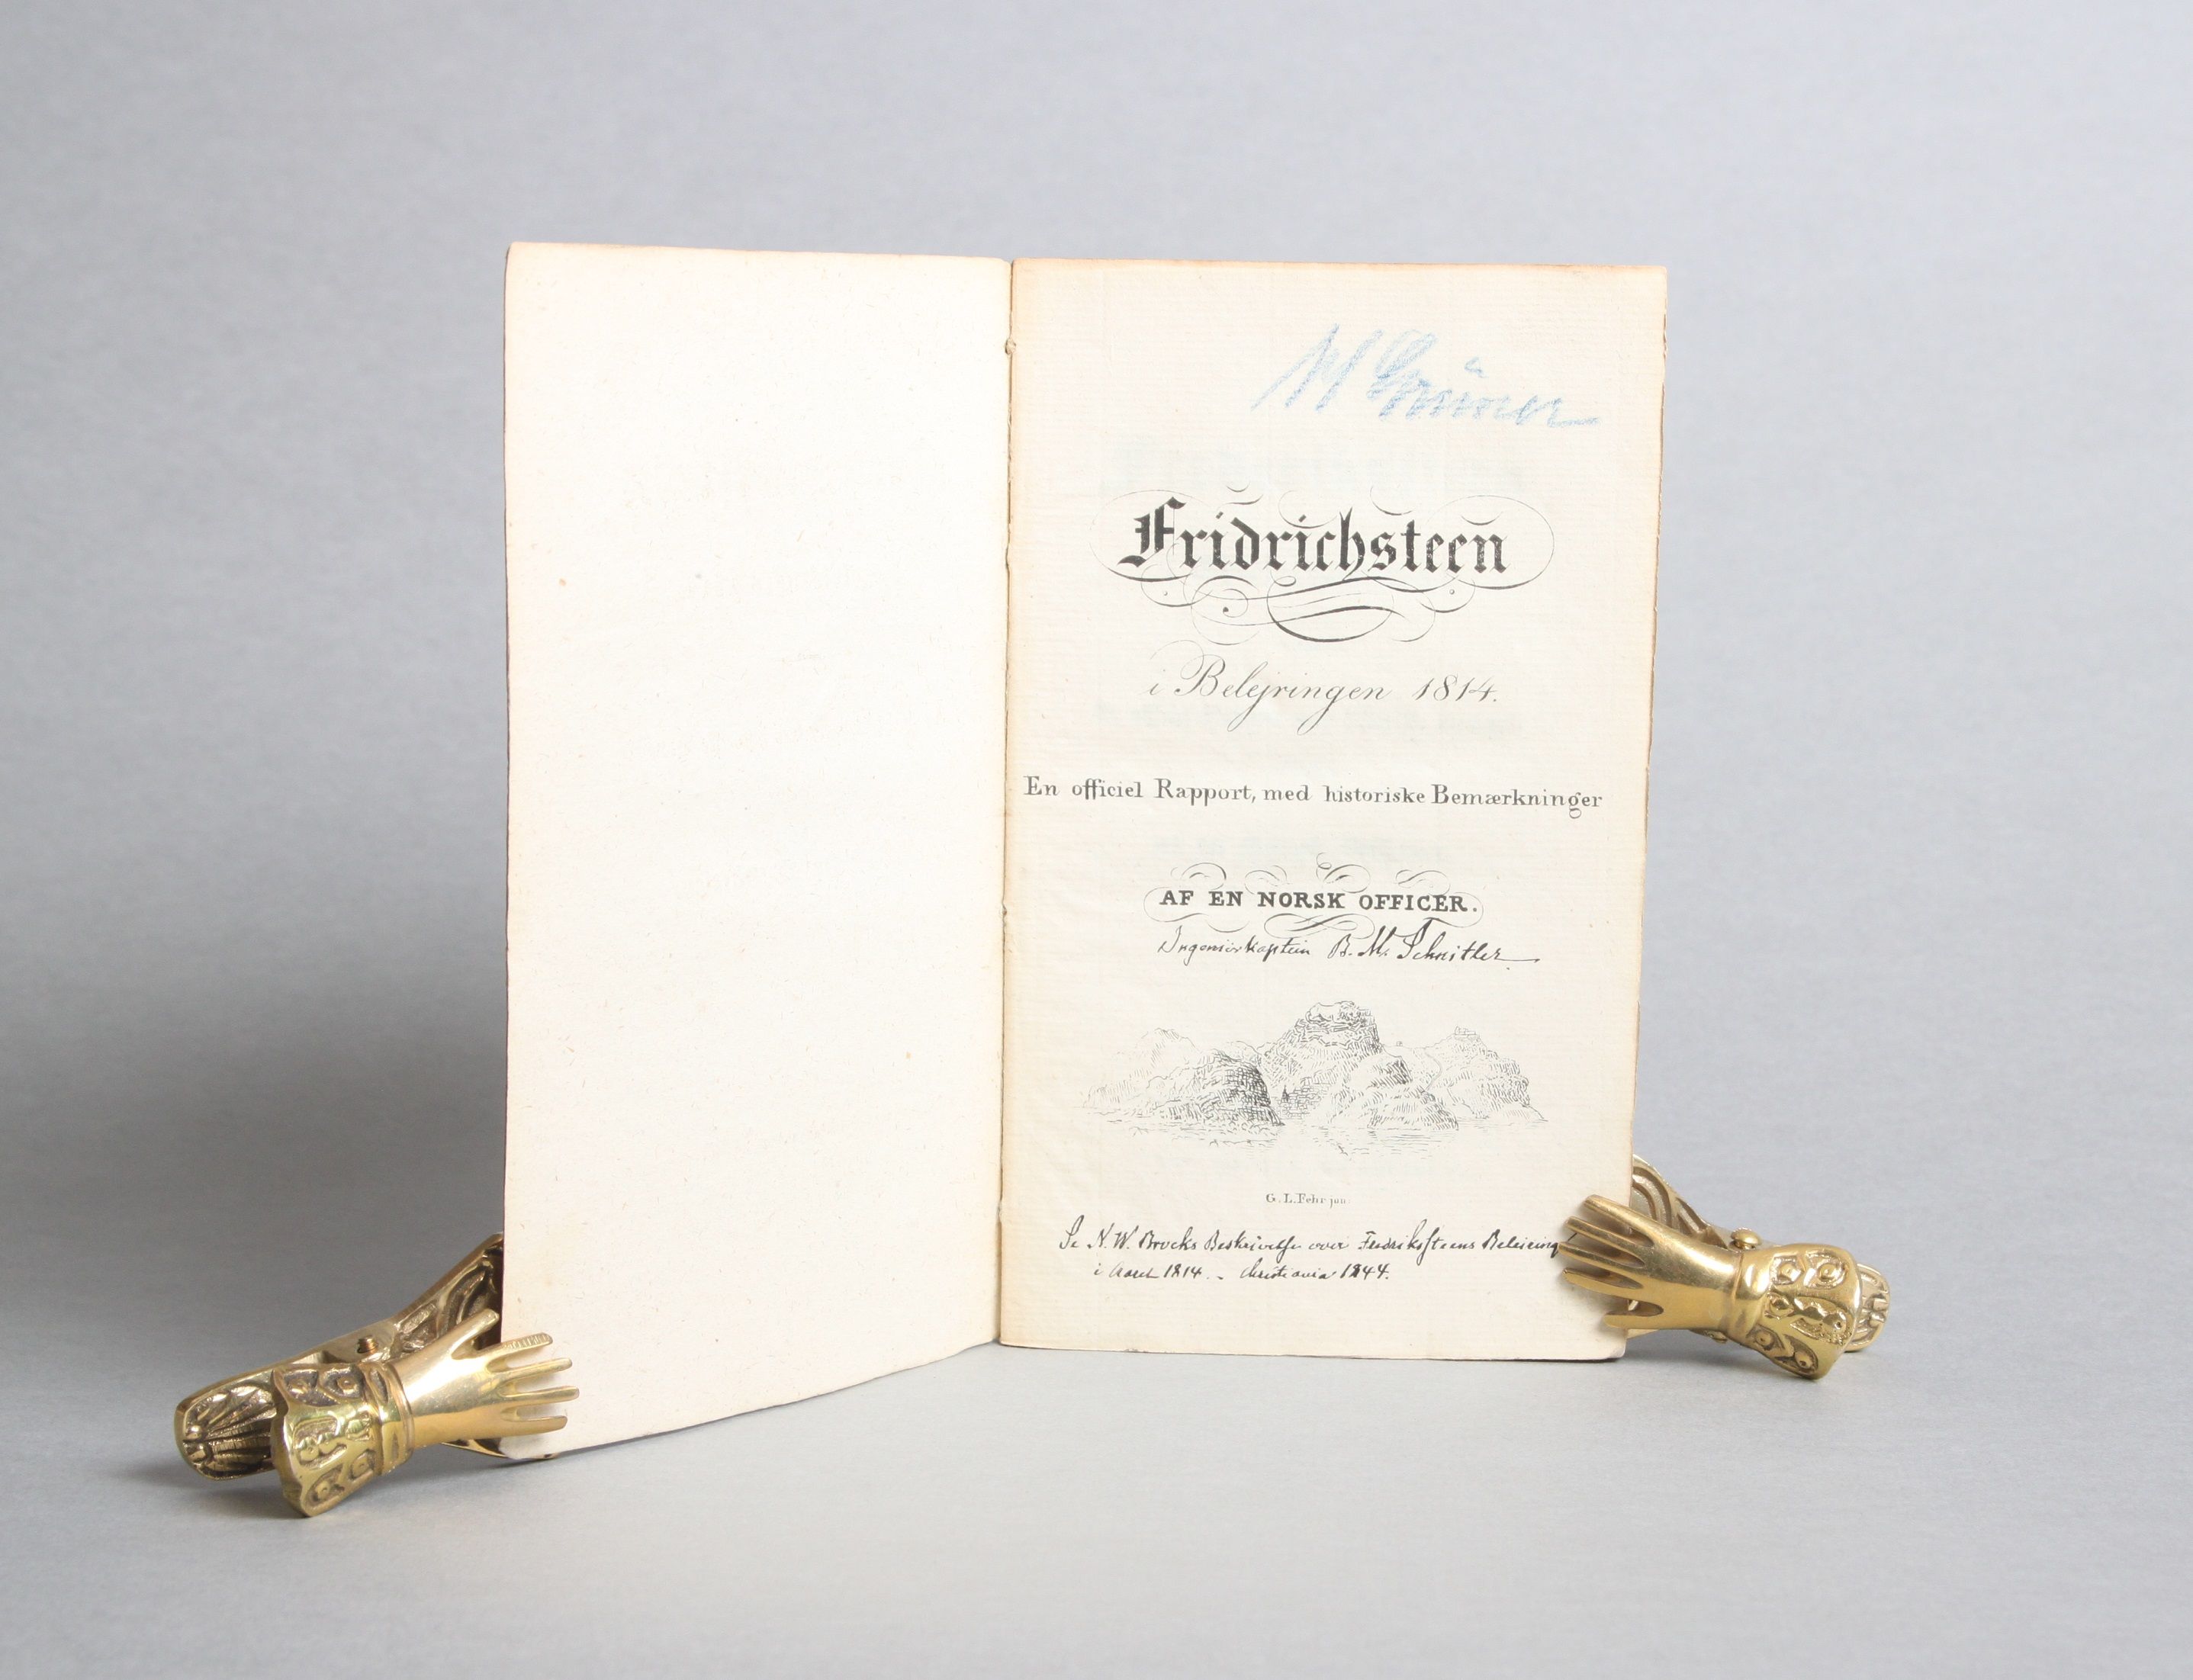 M Grüner
Fridrichsteen
i Belejringen 1814.
En officiel Rapport, med historiske Bemærkninger
AF EN NORSK OFFICER.
Ingeniörkaptein B. M. Schnitler
G. L. Fehr jun
Se N. W. Brocks Beskrivelse over Fredrikssteens Beleiring
i Aaret 1814. - Christiania 1844.